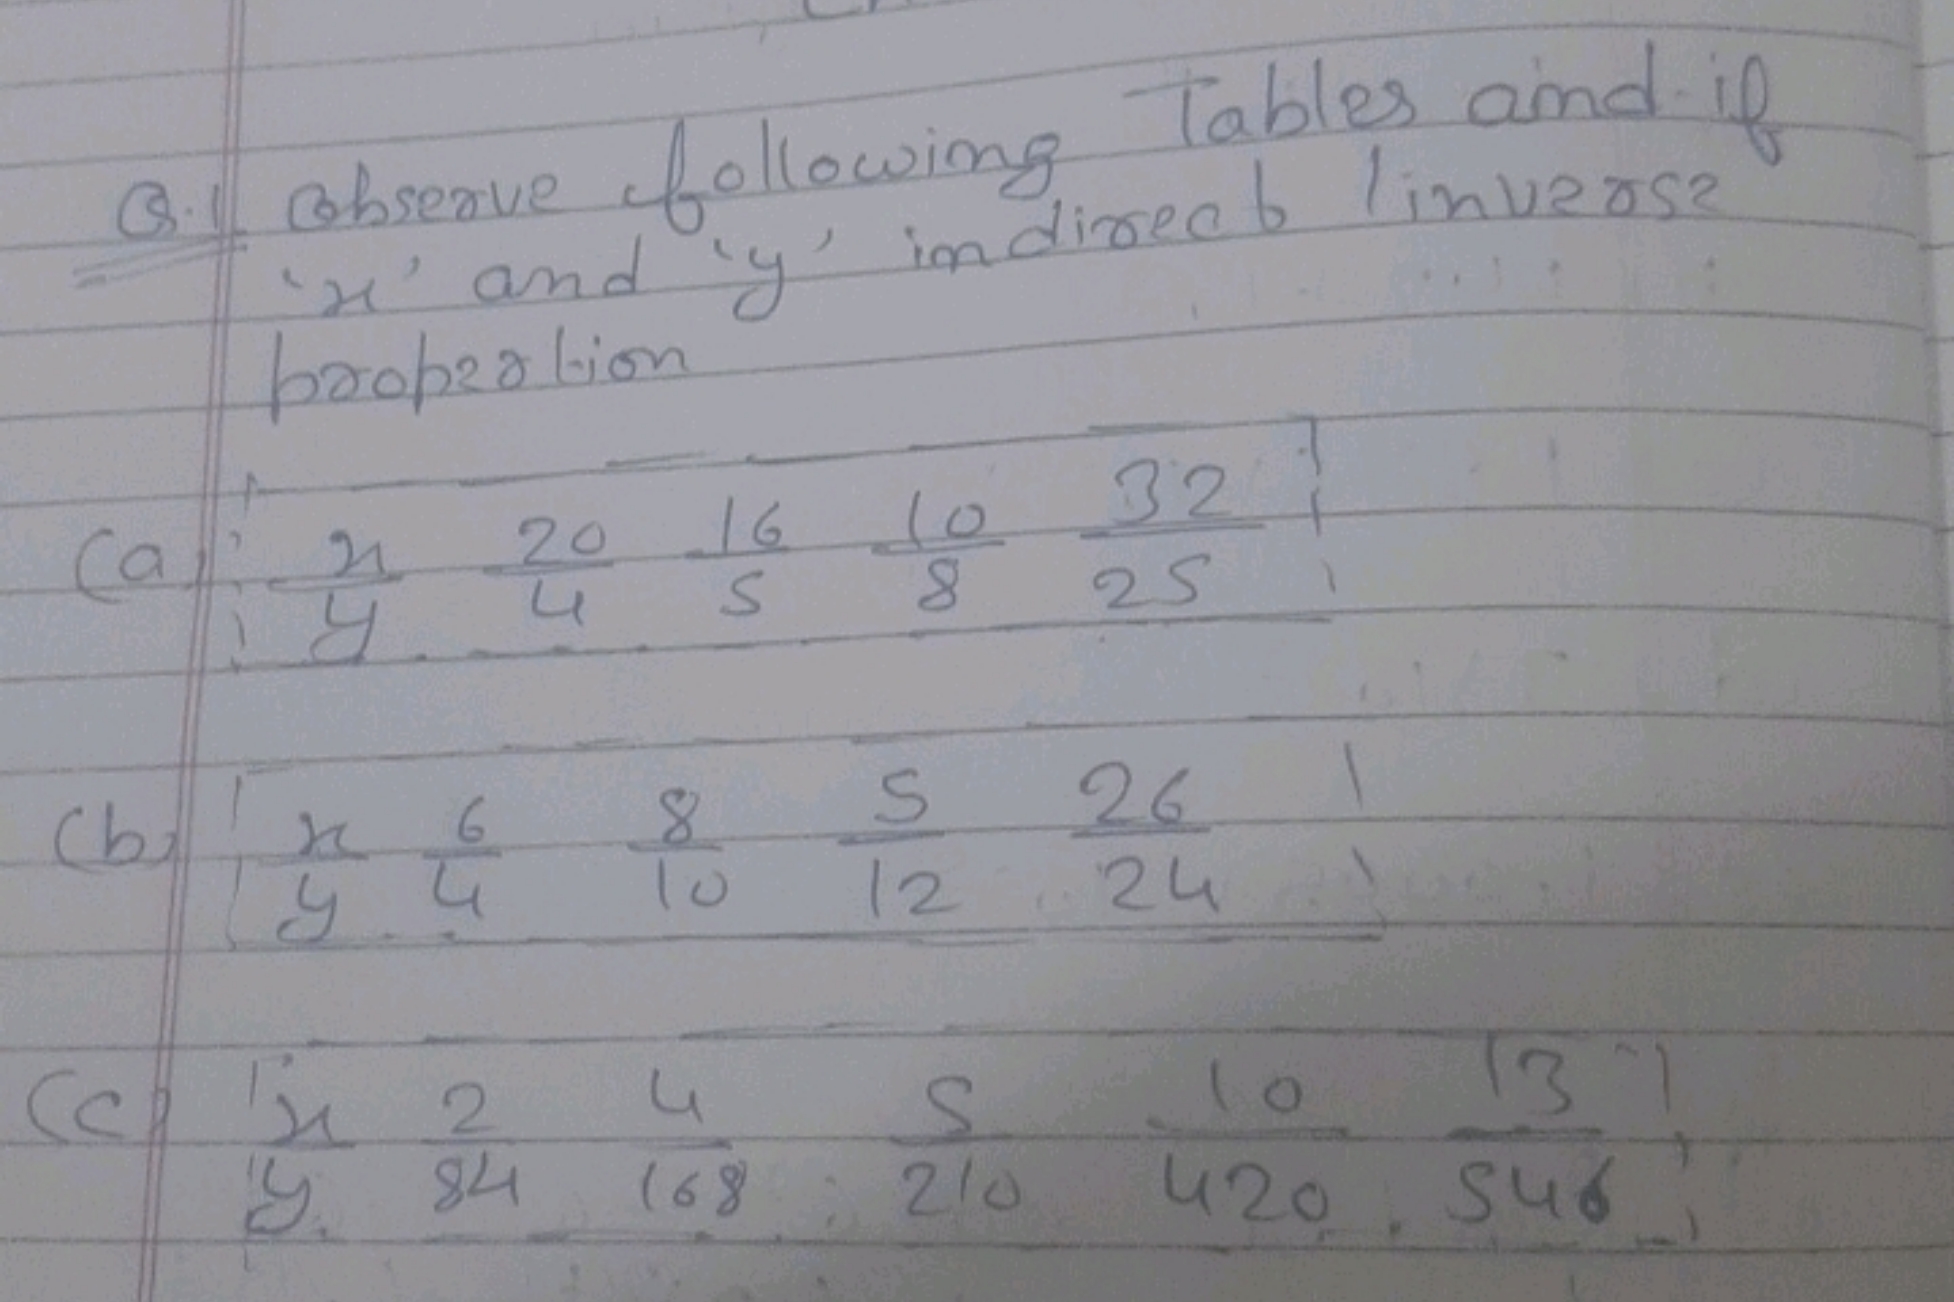 Q.1 Observe following Tables and if
'x' and 'y' in direct / inverse
propertion
(a) x/y 20/4 16/5 10/8 32/25
(b) x/y 6/4 8/10 5/12 26/24
(c) x/y 2/84 4/168 5/210 10/420 13/546